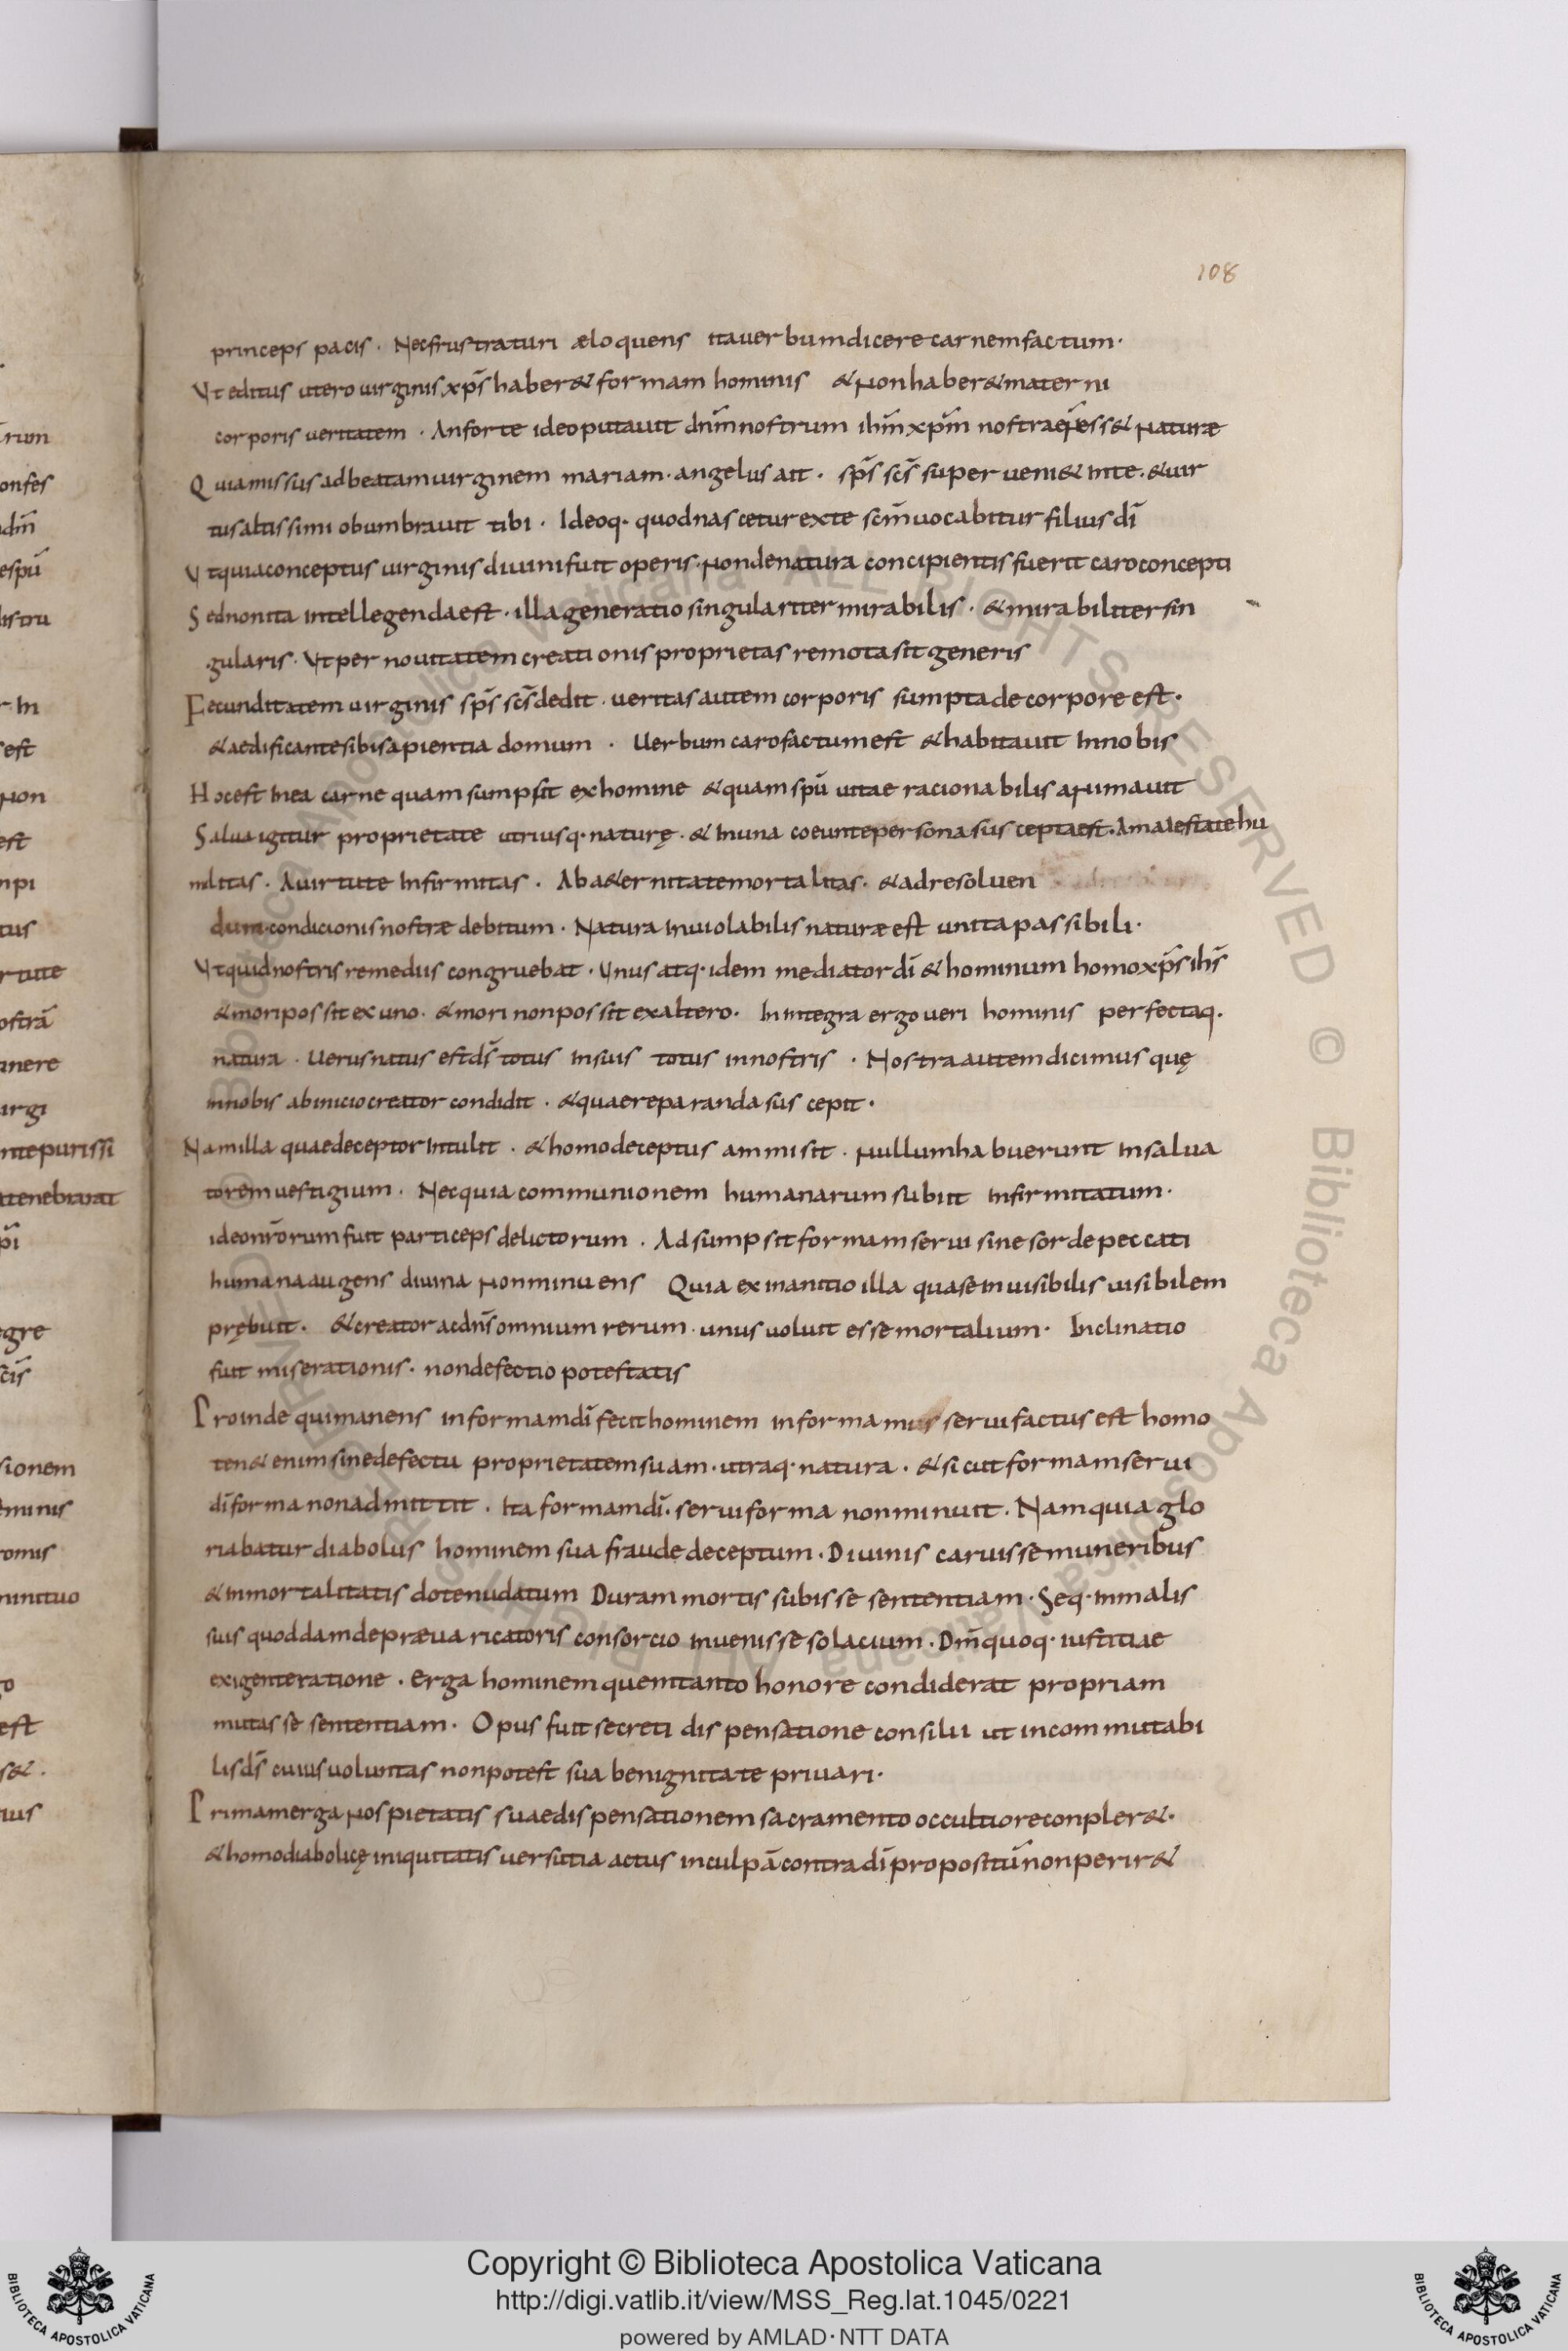 108
princeps pacis · Nec frustraturi æloquens ita uerbum dicere carnem factum ·
Ut editus utero uirginis xp̄s haber& formam hominis & non haber& materni
corporis ueritatem · An forte ideo putauit dn̄m nostrum ihm̄ xpm̄ nostrae ess& naturæ
Quia missus ad beatam uirginem mariam · angelus ait · sp̄s sc̄s superueni& in te · & uir
tus altissimi obumbrauit tibi · Ideoq· quod nascetur ex te sc̄m uocabitur filius dī
Ut quia conceptus uirginis diuini fuit operis · non de natura concipientis fuerit caro concepti
Sed non ita intellegenda est · illa generatio singulariter mirabilis · & mirabiliter sin
gularis · Ut per nouitatem creationis proprietas remota sit generis
Fecunditatem uirginis sp̄s sc̄s dedit · ueritas autem corporis sumpta de corpore est ·
& aedificante sibi sapientia domum · Uerbum caro factum est & habitauit In nobis
Hoc est In ea carne quam sumpsit ex homine & quam spū uitae racionabilis animauit
Salua igitur proprietate utriusq· naturę · & In una coeunte persona suscepta est · A maiestate hu
militas · A uirtute Infirmitas · Ab a&ernitate mortalitas · & ad resoluen
dum condicionis nostræ debitum · Natura Inuiolabilis naturæ est unita passibili ·
Ut quid nostris remediis congruebat · Unus atq· idem mediator dī & hominum homo xp̄s ihs̄
& mori possit ex uno · & mori non possit ex altero · In integra ergo ueri hominis perfectaq·
natura · Uerus natus est ds̄ totus In suis totus in nostris · Nostra autem dicimus quę
In nobis ab inicio creator condidit · & quae reparanda suscepit ·
Nam illa quae deceptor Intulit · & homo deceptus ammisit · nullum habuerunt In salua
torem uestigium · Nec quia communionem humanarum subiit Infirmitatum ·
ideo nr̄orum fuit particeps delictorum · Adsumpsit formam serui sine sorde peccati
humana augens diuina non minuens Quia exinanitio illa qua se inuisibilis uisibilem
prębuit · & creator ac dn̄s omnium rerum · unus uoluit esse mortalium · Inclinatio
fuit miserationis · non defectio potestatis
Proinde qui manens in forma m dī fecit hominem in forma serui factus est homo
ten& enim sine defectu proprietatem suam · utraq· natura · & sicut formam serui
dī forma non admittit · Ita formam dī · serui forma non minuit · Nam quia glo
riabatur diabolus hominem sua fraude deceptum · Diuinis caruisse muneribus
& Inmortalitatis dote nudatum Duram mortis subisse sententiam · Seq· In malis
suis quoddam de præuaricatoris consorcio Inuenisse solacium · Dm̄ quoq· iustitiae
exigente ratione · erga hominem quem tanto honore condiderat propriam
mutasse sententiam · Opus fuit secreti dispensatione consilii ut incommutabi
lis ds̄ cuius uoluntas non potest sua benignitate priuari ·
Primam erga nos pietatis suae dispensationem sacramento occultiore conpler& ·
& homo diabolicę iniquitatis uersutia actus in culpā contra dī propositū non perir&
Copyright © Biblioteca Apostolica Vaticana
http://digi.vatlib.it/view/MSS_Reg.lat.1045/0221
powered by AMLAD·NTT DATA